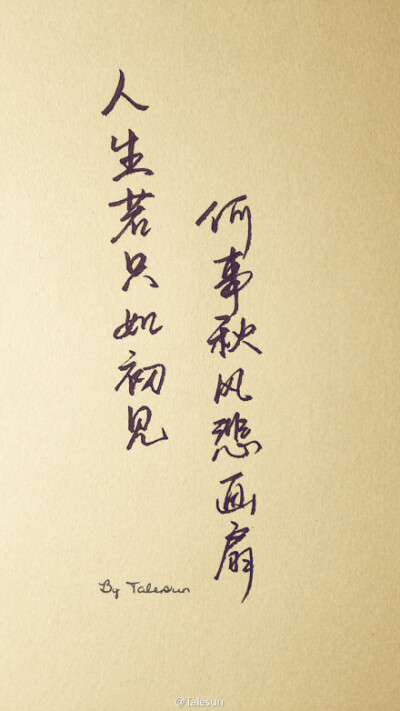 人生若只如初见
何事秋风悲画扇
By Talesun
@Talesun